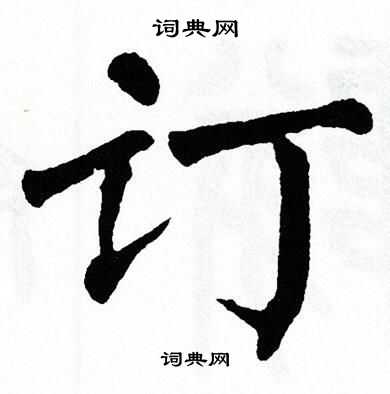 词典网
订
词典网